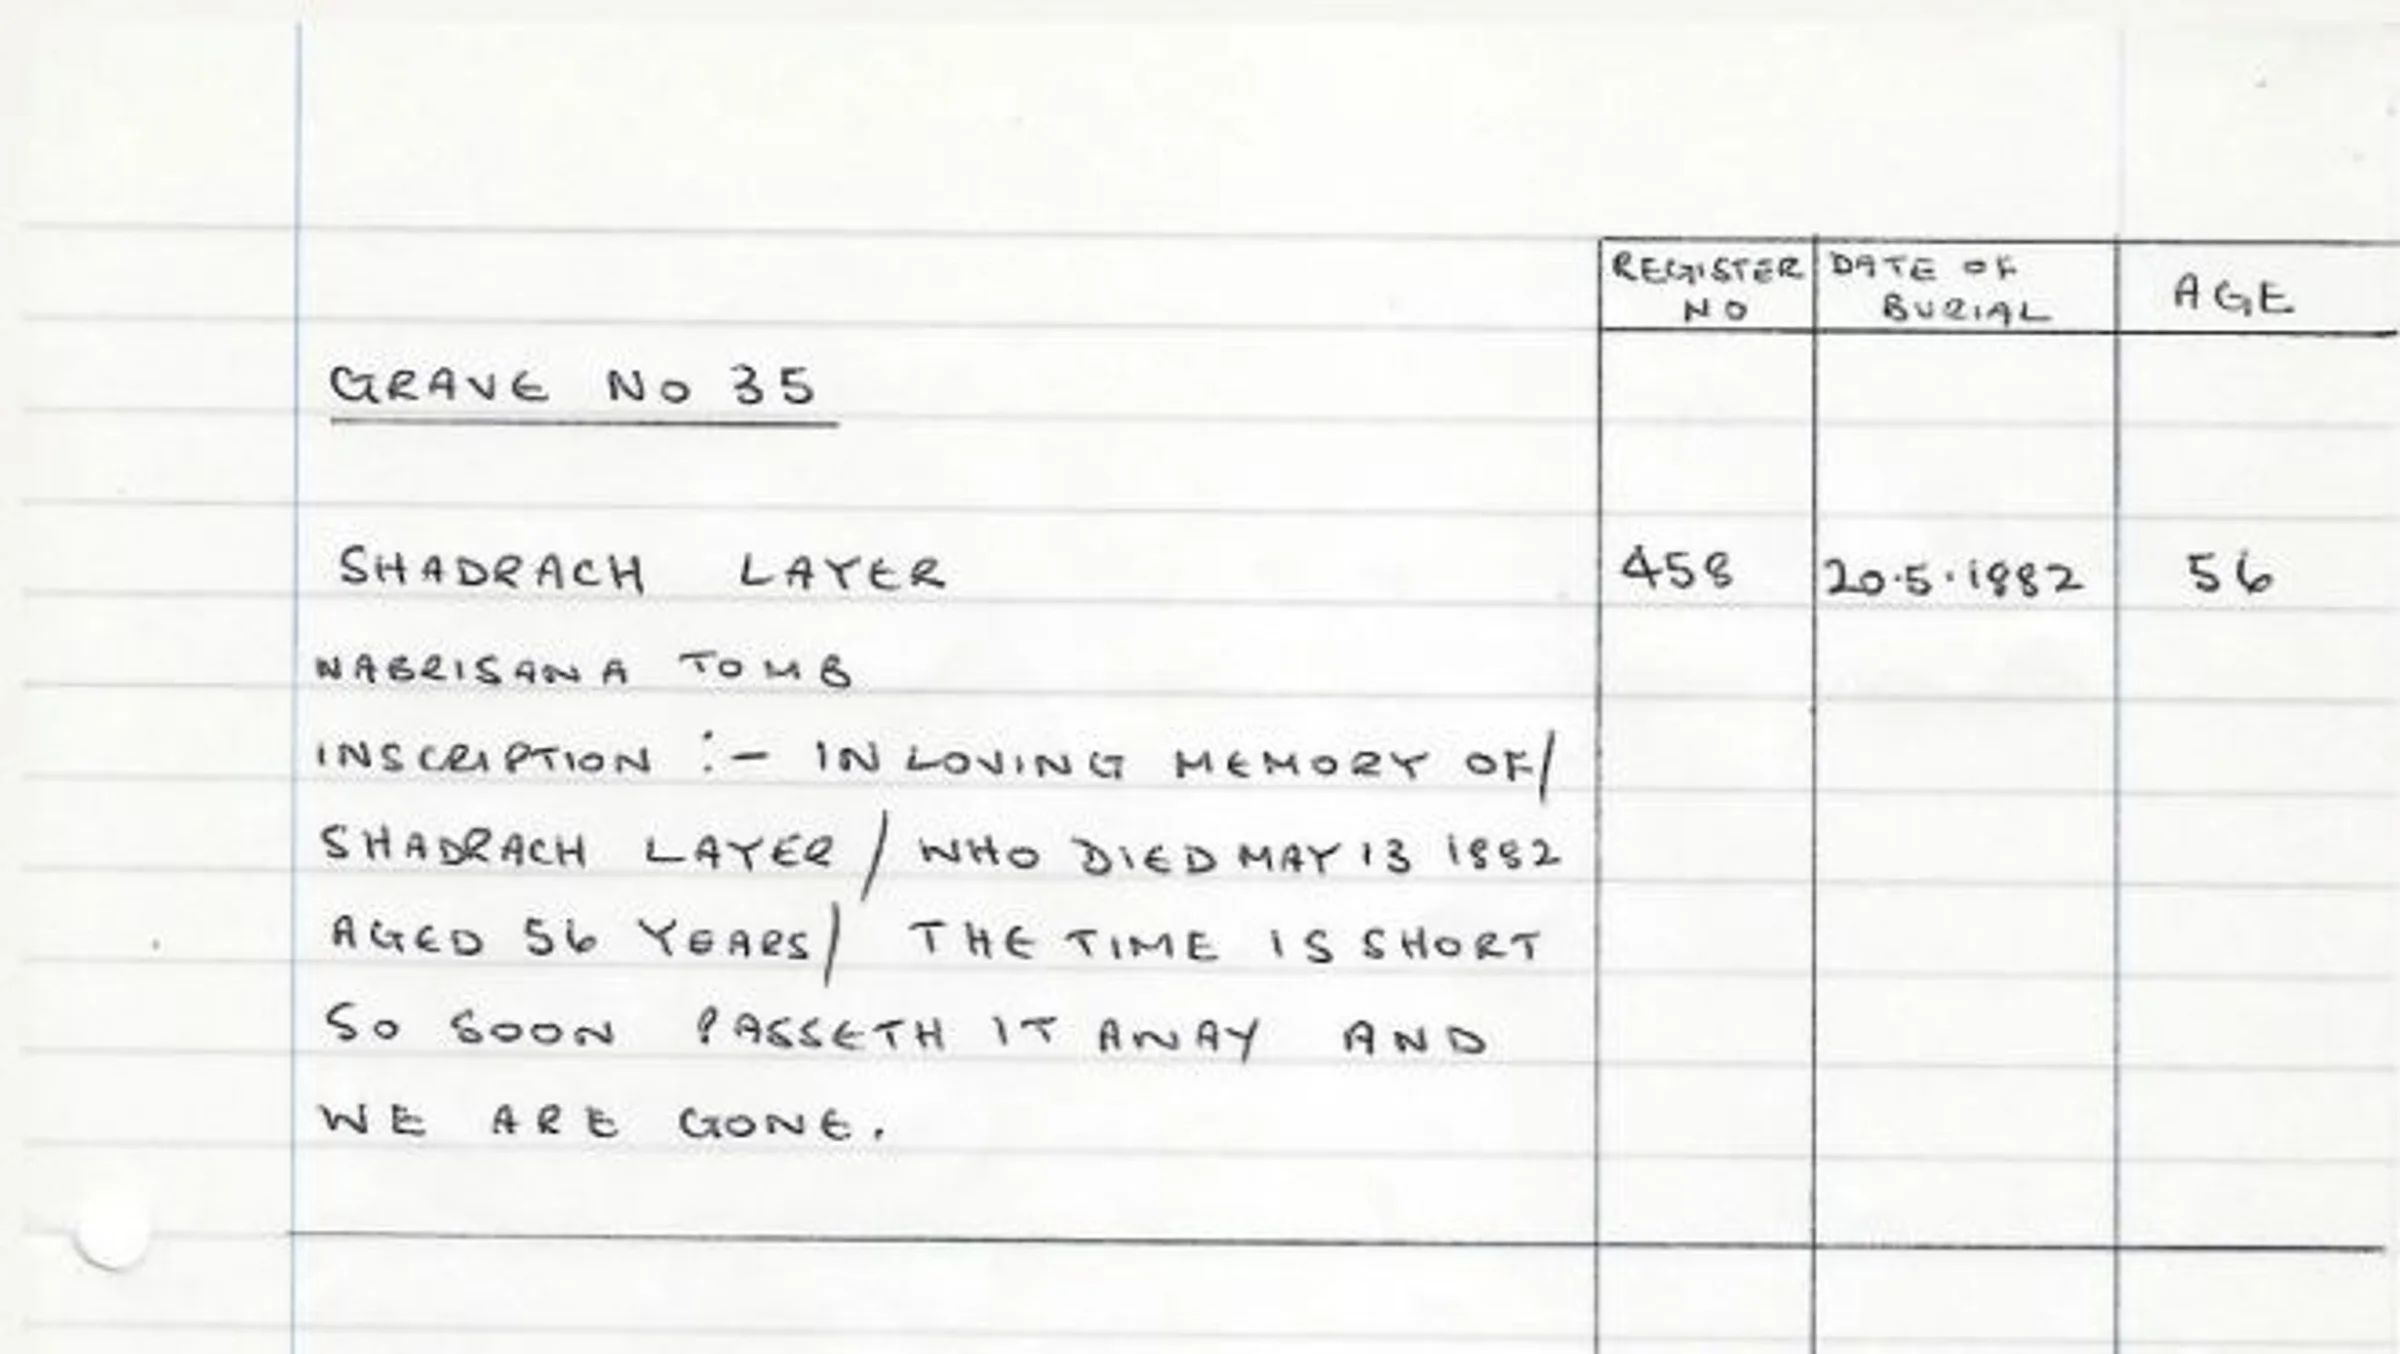 REGISTER NO DATE OF BURIAL AGE
GRAVE No 35
SHADRACH LAYER 458 20.5.1882 56
NABRISANA TOMB
INSCRIPTION :- IN LOVING MEMORY OF/
SHADRACH LAYER / WHO DIED MAY 13 1882
AGED 56 YEARS/ THE TIME IS SHORT
SO SOON PASSETH IT AWAY AND
WE ARE GONE.